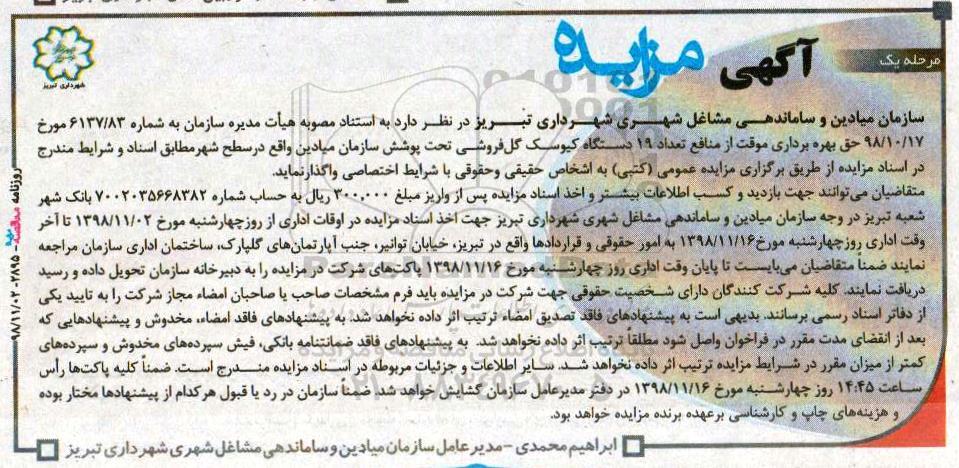 مرحله یک
آگهی مزایده
شهرداری تبریز
سازمان میادین و ساماندهی مشاغل شهری شهرداری تبریز در نظر دارد به استناد مصوبه هیأت مدیره سازمان به شماره ۶۱۳۷/۸۳ مورخ
۹۸/۱۰/۱۷ حق بهره برداری موقت از منافع تعداد ۱۹ دستگاه کیوسک گل‌فروشی تحت پوشش سازمان میادین واقع درسطح شهرمطابق اسناد و شرایط مندرج
در اسناد مزایده از طریق برگزاری مزایده عمومی (کتبی) به اشخاص حقیقی وحقوقی با شرایط اختصاصی واگذارنماید.
متقاضیان می‌توانند جهت بازدید و کسب اطلاعات بیشتر و اخذ اسناد مزایده پس از واریز مبلغ ۳۰۰.۰۰۰ ریال به حساب شماره ۷۰۰۲۰۳۵۶۶۸۳۸۲ بانک شهر
شعبه تبریز در وجه سازمان میادین و ساماندهی مشاغل شهری شهرداری تبریز جهت اخذ اسناد مزایده در اوقات اداری از روزچهارشنبه مورخ ۱۳۹۸/۱۱/۰۲ تا آخر
وقت اداری روزچهارشنبه مورخ۱۳۹۸/۱۱/۱۶ به امور حقوقی و قراردادها واقع در تبریز، خیابان توانیر، جنب آپارتمان‌های گلپارک، ساختمان اداری سازمان مراجعه
نمایند ضمناً متقاضیان می‌بایست تا پایان وقت اداری روز چهارشنبه مورخ ۱۳۹۸/۱۱/۱۶ پاکت‌های شرکت در مزایده را به دبیرخانه سازمان تحویل داده و رسید
دریافت نمایند. کلیه شرکت کنندگان دارای شخصیت حقوقی جهت شرکت در مزایده باید فرم مشخصات صاحب یا صاحبان امضاء مجاز شرکت را به تایید یکی
از دفاتر اسناد رسمی برسانند. بدیهی است به پیشنهادهای فاقد تصدیق امضاء ترتیب اثر داده نخواهد شد. به پیشنهادهای فاقد امضاء، مخدوش و پیشنهادهایی که
بعد از انقضای مدت مقرر در فراخوان واصل شود مطلقاً ترتیب اثر داده نخواهد شد. به پیشنهادهای فاقد ضمانتنامه بانکی، فیش سپرده‌های مخدوش و سپرده‌های
کمتر از میزان مقرر در شرایط مزایده ترتیب اثر داده نخواهد شد. سایر اطلاعات و جزئیات مربوطه در اسناد مزایده مندرج است. ضمناً کلیه پاکت‌ها رأس
ساعت ۱۴:۴۵ روز چهارشنبه مورخ ۱۳۹۸/۱۱/۱۶ در دفتر مدیرعامل سازمان گشایش خواهد شد. ضمناً سازمان در رد یا قبول هرکدام از پیشنهادها مختار بوده
و هزینه‌های چاپ و کارشناسی برعهده برنده مزایده خواهد بود.
ابراهیم محمدی -مدیرعامل سازمان میادین و ساماندهی مشاغل شهری شهرداری تبریز
روزنامه ۲۸۹۵- ۹۸/۱۱/۰۲